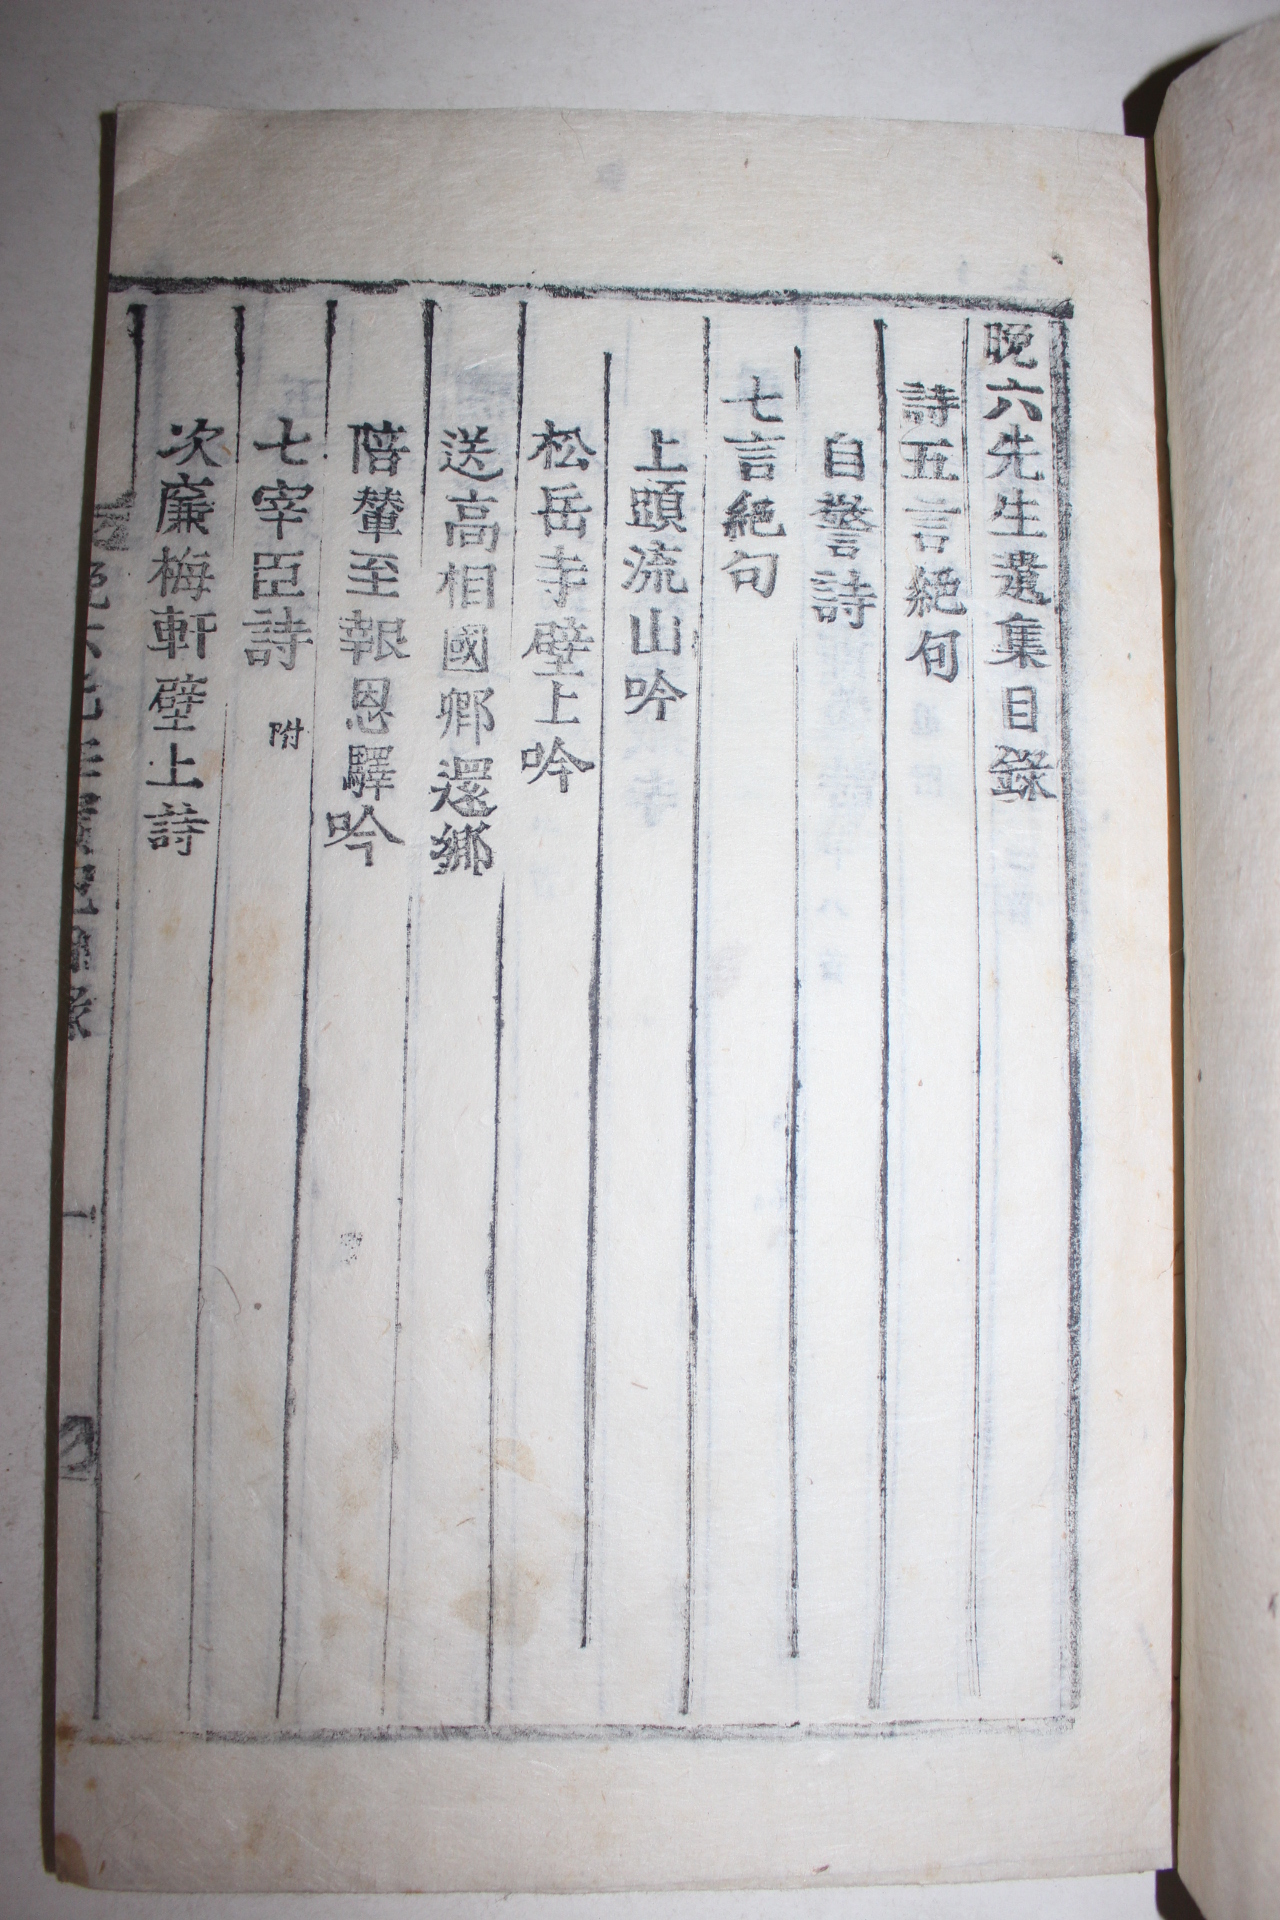 晩六先生遺集目錄
詩五言絕句
自警詩
七言絕句
上頭流山吟
松岳寺壁上吟
送高相國鄕還鄕
陪輦至報恩驛吟
七宰臣詩 附
次廉梅軒壁上詩
一